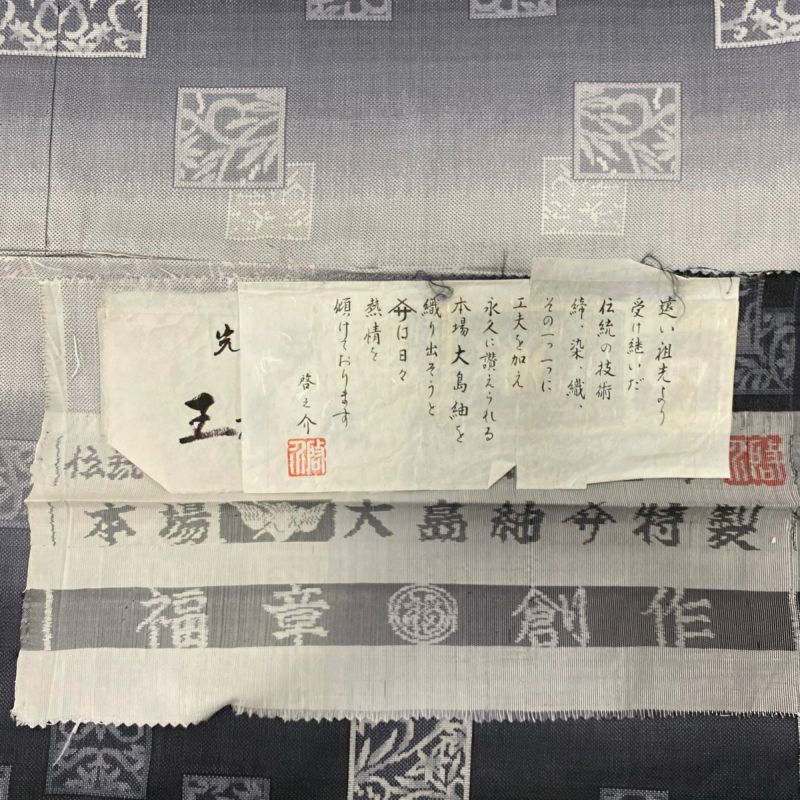 遠い祖先より
受け継いだ
伝統の技術
締、染、織、
その一つ一つに
工夫を加え
永久に讃えられる
本場大島紬を
織り出そうと
は日々
熱情を
傾けております
啓之介
啓
先
王
伝統
本場 大島紬 特製
福章 創作